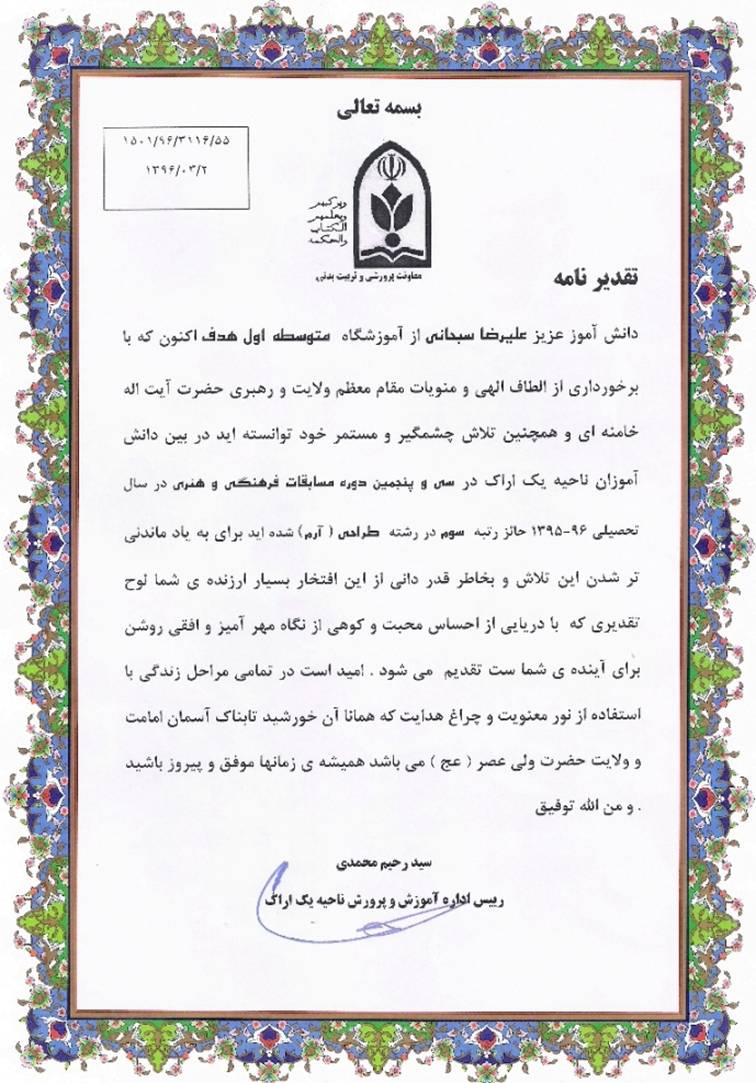 بسمه تعالی
۱۵۰۱/۹۶/۳۱۱۶/۵۵
۱۳۹۶/۰۳/۲
ویزکیهم
ویعلمهم
الکتاب
والحکمه
معاونت پرورشی و تربیت بدنی
تقدیر نامه
دانش آموز عزیز علیرضا سبحانی از آموزشگاه متوسطه اول هدف اکنون که با
برخورداری از الطاف الهی و منویات مقام معظم ولایت و رهبری حضرت آیت اله
خامنه ای و همچنین تلاش چشمگیر و مستمر خود توانسته اید در بین دانش
آموزان ناحیه یک اراک در سی و پنجمین دوره مسابقات فرهنگی و هنری در سال
تحصیلی ۹۶-۱۳۹۵ حائز رتبه سوم در رشته طراحی ( آرم) شده اید برای به یاد ماندنی
تر شدن این تلاش و بخاطر قدر دانی از این افتخار بسیار ارزنده ی شما لوح
تقدیری که با دریایی از احساس محبت و کوهی از نگاه مهر آمیز و افقی روشن
برای آینده ی شما ست تقدیم می شود . امید است در تمامی مراحل زندگی با
استفاده از نور معنویت و چراغ هدایت که همانا آن خورشید تابناک آسمان امامت
و ولایت حضرت ولی عصر ( عج ) می باشد همیشه ی زمانها موفق و پیروز باشید
. و من الله توفیق
سید رحیم محمدی
رییس اداره آموزش و پرورش ناحیه یک اراک